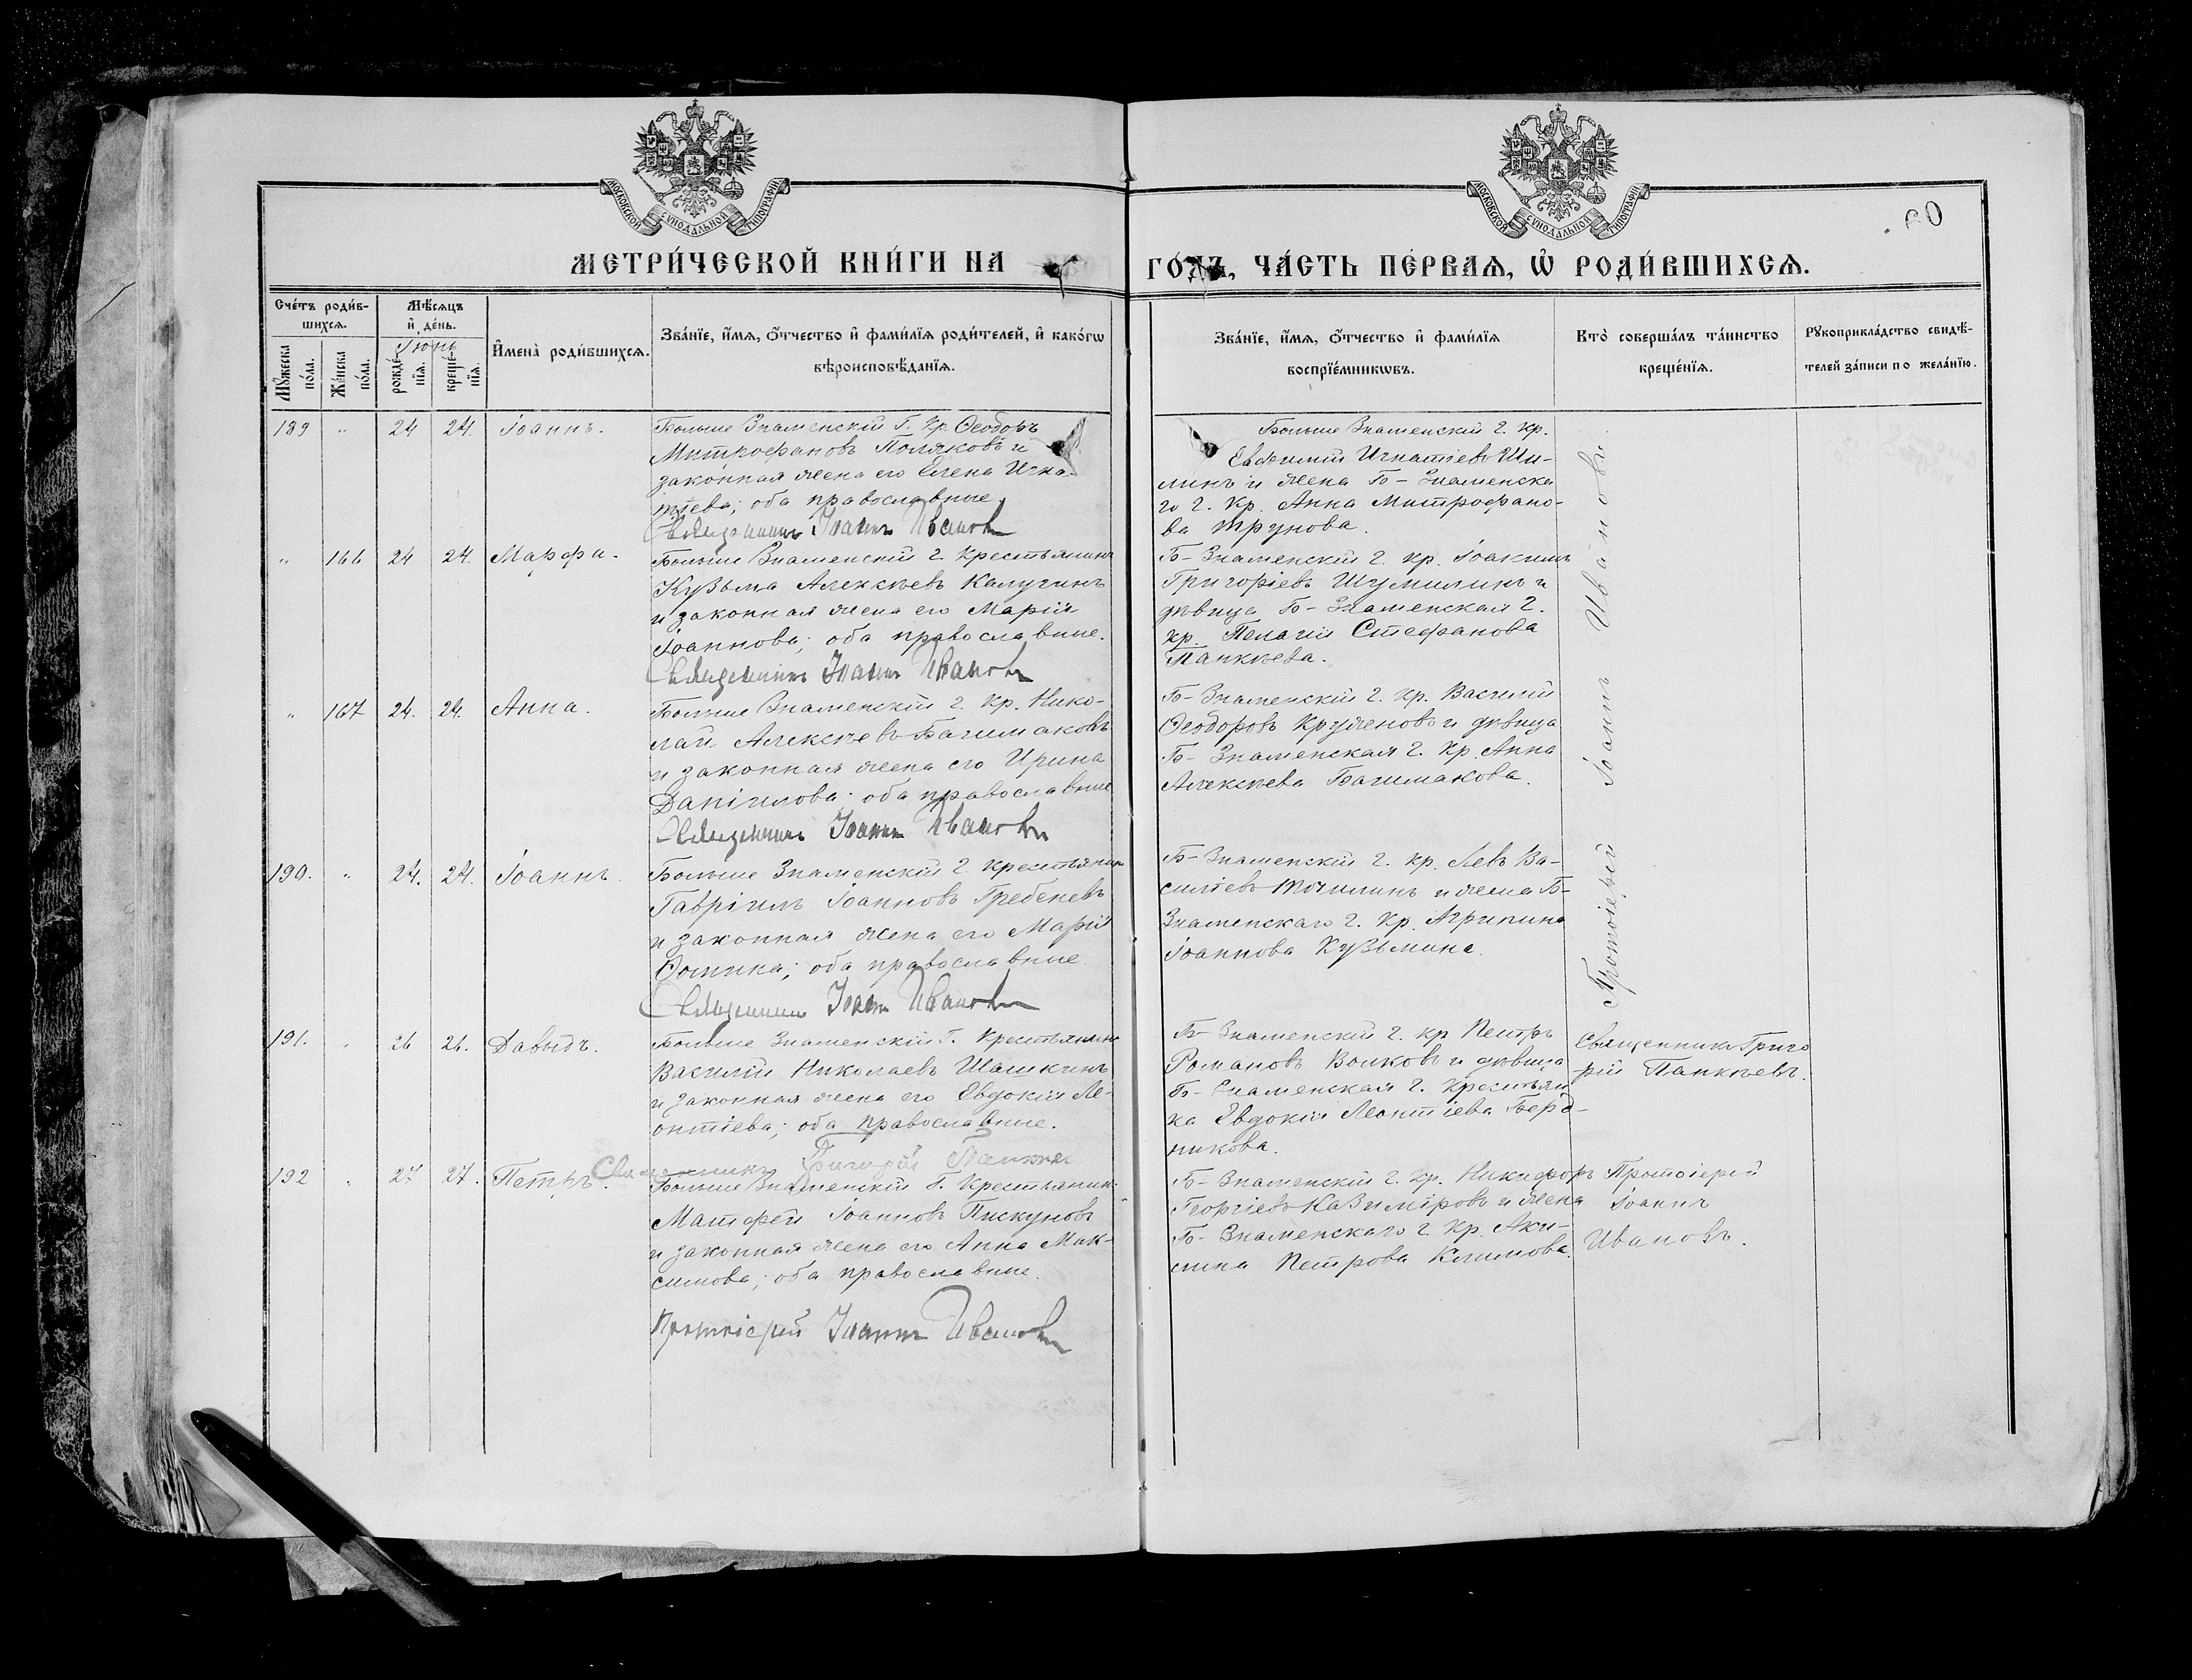 МОСКОВСКОЙ СѴНОДАЛЬНОЙ ТИПОГРАФІИ
МОСКОВСКОЙ СѴНОДАЛЬНОЙ ТИПОГРАФІИ
МЕТРИ́ЧЕСКОЙ КНИ́ГИ НА
ГО́ДЪ, ЧА́СТЬ ПЕ́РВАЯ, Ѽ РОДИ́ВШИХСЯ.
Сче́тъ роди́в-
шихся.
Мѣ́сяцъ
и҆ де́нь.
Іюнь
Мꙋжеска по́ла.
Же́нска по́ла.
рожде́-
нїя.
креще́-
нїя.
И҆мена̀ роди́вшихся.
Зва́нїе, и҆́мя, ѻ҆́тчество и҆ фами́лїя роди́телей, и҆ како́гѡ
вѣроисповѣ́данїя.
Зва́нїе, и҆́мя, ѻ҆́тчество и҆ фами́лїя
воспрїе́мникѡвъ.
Кто̀ соверша́лъ та́инство
креще́нїя.
Рꙋкоприкла́дство свидѣ́-
телей за́писи по жела́нїю.
189 " 24 24. Іоаннъ.
Больше Знаменскій Г. Кр. Ѳеодоръ
Митрофановъ Поляковъ и
законная жена его Елена Игна-
тіева; оба православные.
Священникъ Іоаннъ Ивановъ
Больше Знаменскій г. кр.
Евфимій Игнатіевъ Ши-
линъ и жена Б-Знаменска
го г. Кр. Анна Митрофано-
ва Трунова.
" 166 24 24. Марфа.
Больше Знаменскій г. крестьянинъ
Кузьма Алексѣевъ Калугинъ
и законная жена его Марія
Іоаннова; оба православные.
Священникъ Іоаннъ Ивановъ
Б-Знаменскій г. кр. Іоакимъ
Григоріевъ Шумилинъ и
дѣвица Б-Знаменская г.
кр. Пелагія Стефанова
Папкѣева.
" 167 24. 24. Анна.
Больше Знаменскій г. кр. Нико-
лай Алексѣевъ Башмаковъ
и законная жена его Ирина
Даніилова; оба православные
Священникъ Іоаннъ Ивановъ
Б-Знаменскій г. кр. Василій
Ѳеодоровъ Круженовъ и дѣвица
Б-Знаменская г. кр. Анна
Алексѣева Башмакова.
190. " 24. 24. Іоаннъ.
Больше Знаменскій г. крестьянинъ
Гавріилъ Іоанновъ Гребеневъ
и законная жена его Марія
Ѳомина; оба православные
Священникъ Іоаннъ Ивановъ
Б-Знаменскій г. кр. Левъ Ва-
силіевъ Точилинъ и жена Б-
Знаменскаго г. кр. Агрипина
Іоаннова Кузьмина.
Протоіерей Іоаннъ Ивановъ.
191. " 26 26. Давыдъ.
Больше Знаменскій Г. Крестьянинъ
Василій Николаевъ Шашкинъ
и законная жена его Евдокія Ле-
онтіева; оба православные.
Священникъ Григорій Папкѣев
Б-Знаменскій г. кр Петръ
Романовъ Волковъ и дѣвица
Б-Знаменская г. крестьян
ка Евдокія Леонтіева Берд-
никова.
Священникъ Григо
рій Папкѣевъ.
192 " 27 27. Петръ.
Больше Знаменскій Г. Крестьянин.
Матфей Іоанновъ Пискуновъ
и законная жена его Анна Мак-
симова; оба православные.
Протоіерей Іоаннъ Ивановъ
Б-Знаменскій г. кр. Никифоръ
Георгіевъ Казиміровъ и жена
Б-Знаменскаго г. кр. Аки-
лина Петрова Климова.
Протоіерей
Іоаннъ
Ивановъ.